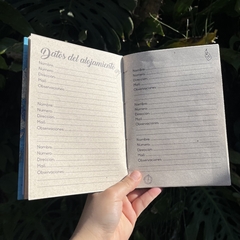 Datos del alojamiento
Nombre:
Dirección:
Mail:
Observaciones:
Nombre:
Dirección:
Mail:
Observaciones:
Nombre:
Dirección:
Mail:
Observaciones:
Nombre:
Dirección:
Mail:
Observaciones:
Nombre:
Dirección:
Mail:
Observaciones: